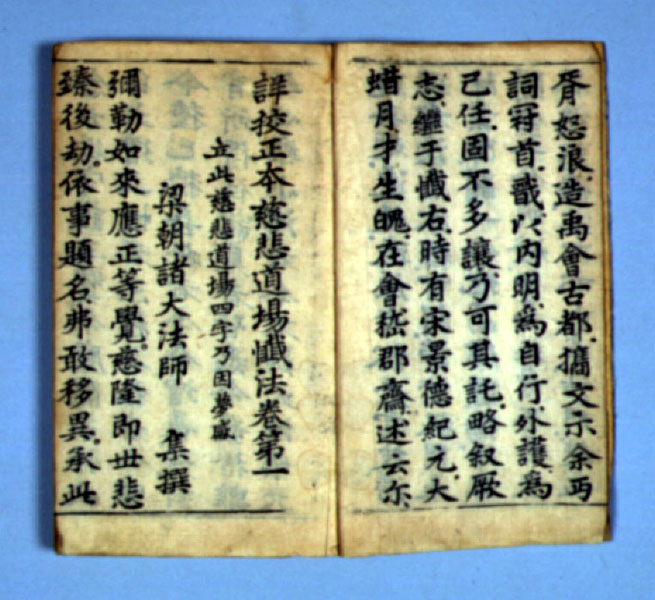 胥怒浪造禹會古都攟文示余丐
詞冠首戢以内明爲自行外護爲
己任固不多讓乃可其託略叙厥
志繼于懺右時有宋景德紀元大
蜡月才生魄在會嵇郡齋述云尒
詳挍正本慈悲道場懺法卷第一
立此慈悲道場四字乃因夢感
梁朝諸大法師　集撰
彌勒如來應正等覺慈隆即世悲
臻後劫依事題名弗敢移異承此